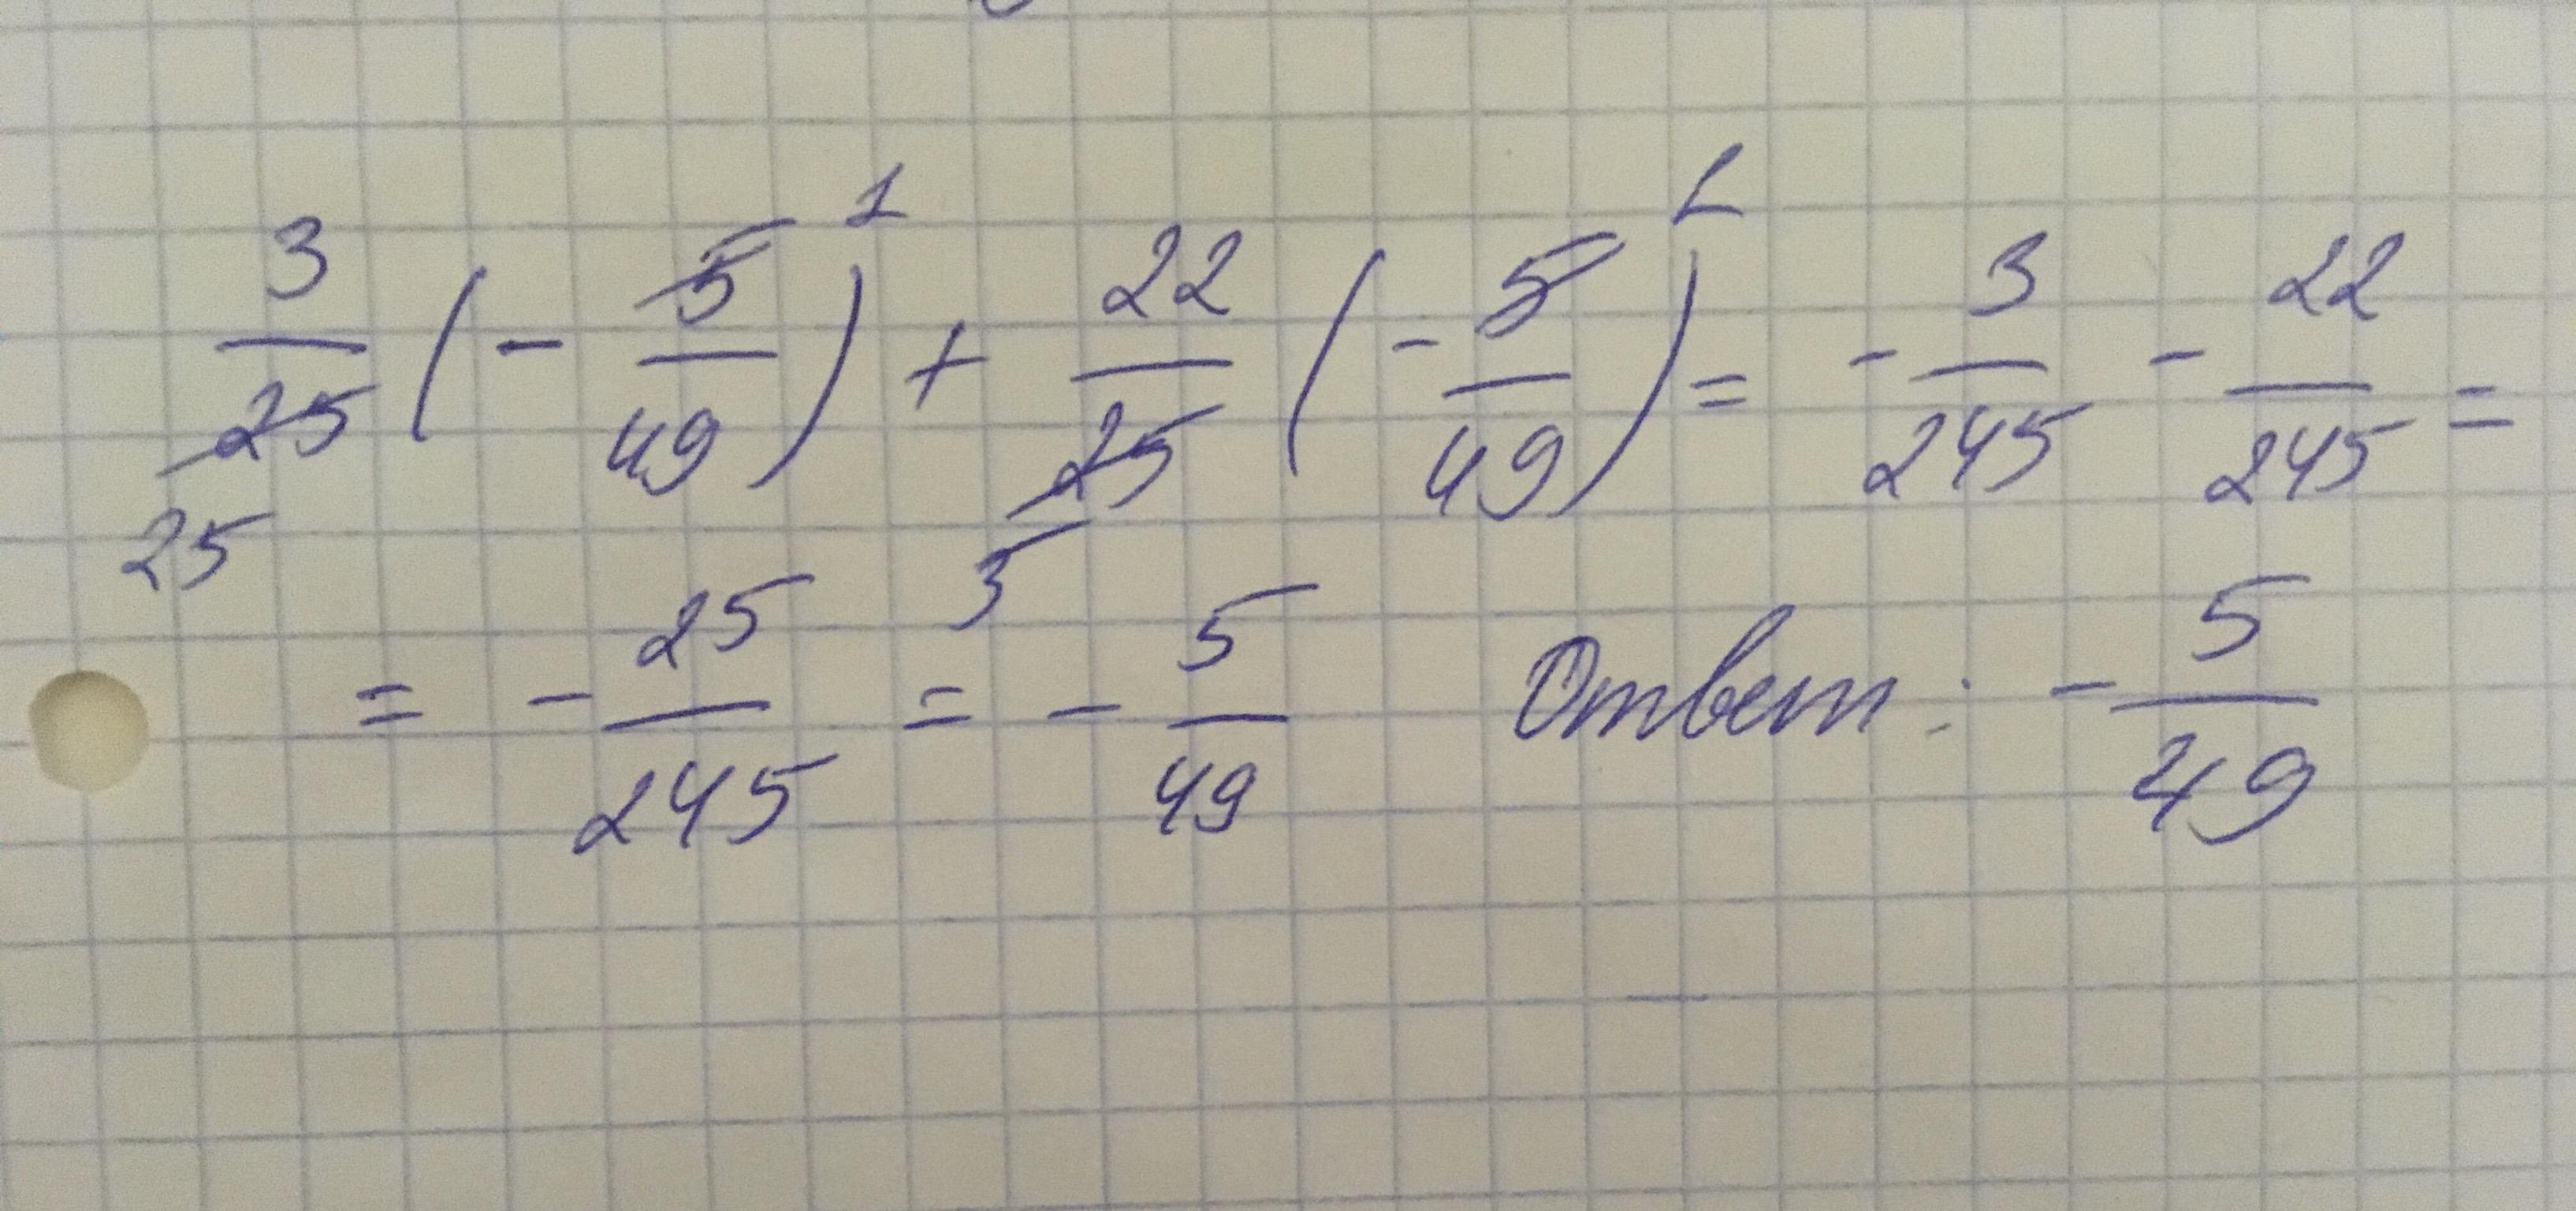 3/25 (- 5/49)¹ + 22/25 (- 5/49)¹ = - 3/245 - 22/245 =
25 5
= - 25/245 = - 5/49 Ответ: - 5/49